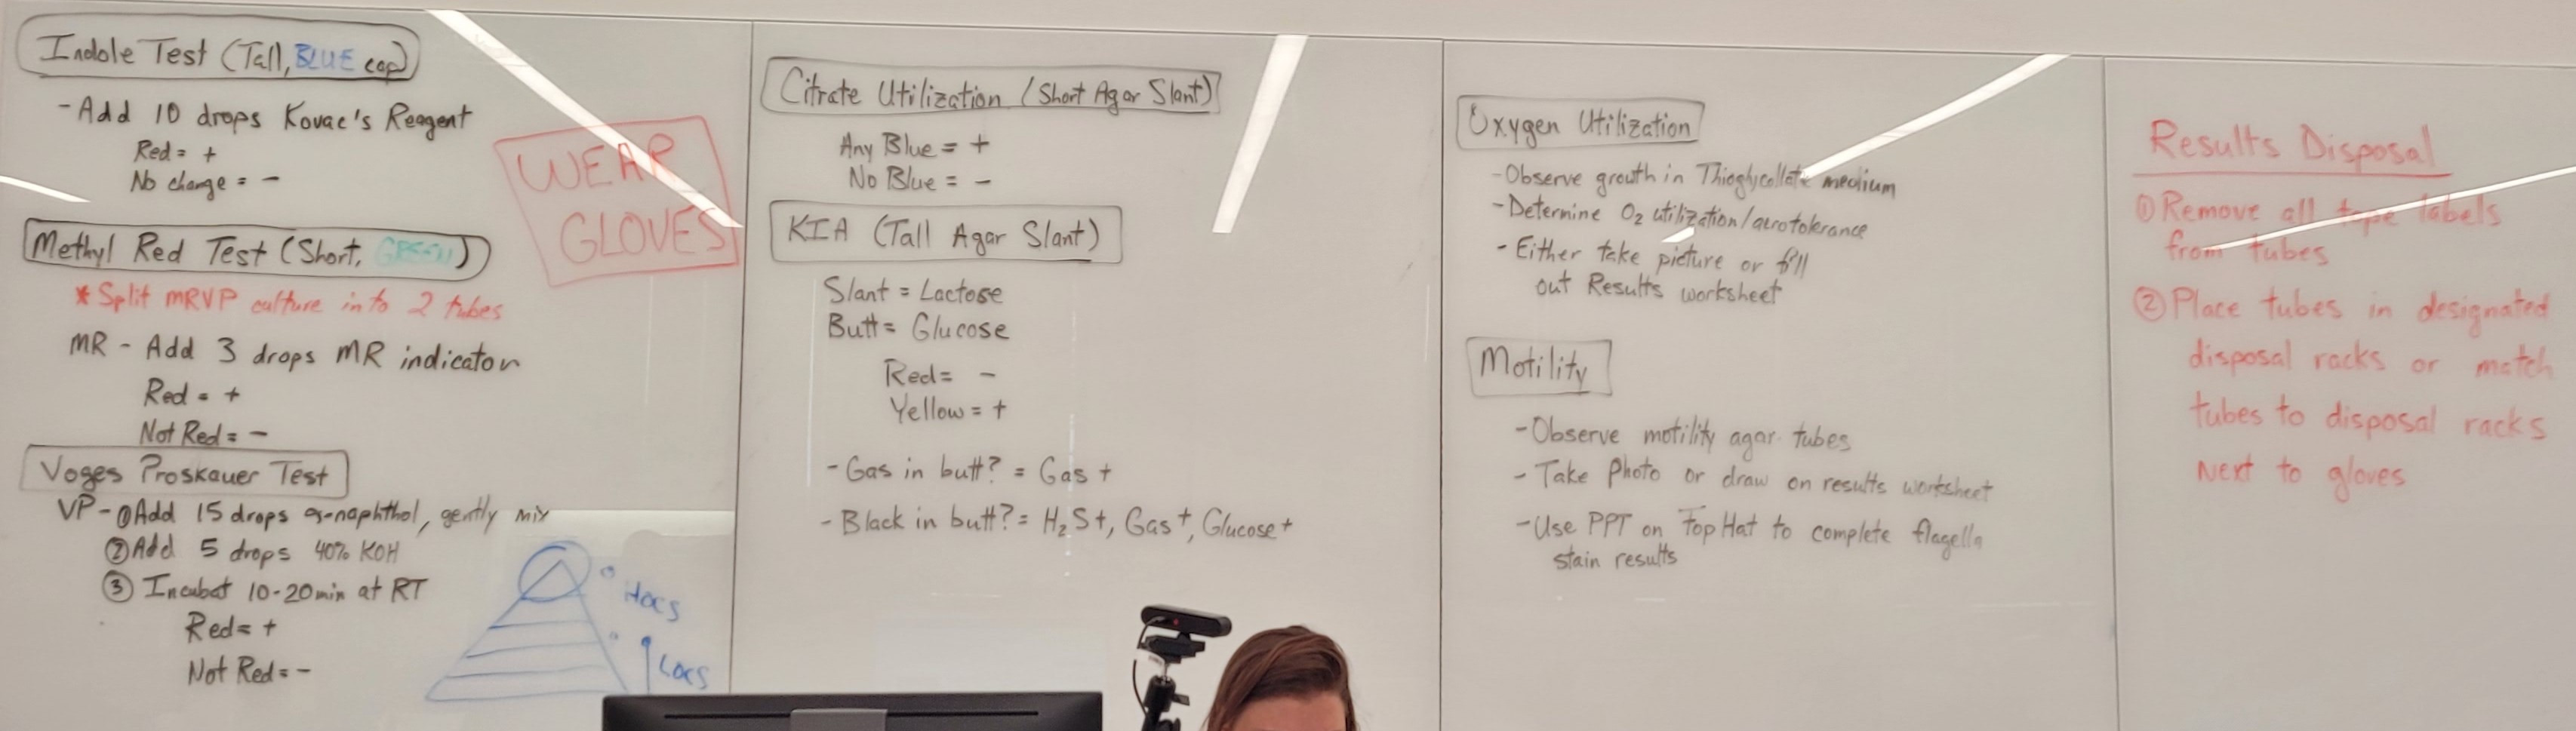 Indole Test (Tall, BLUE cap)
- Add 10 drops Kovac's Reagent
Red = +
No change = -
WEAR
GLOVES
Methyl Red Test (Short, GREEN)
* Split MRVP culture into 2 tubes
MR - Add 3 drops MR indicator
Red = +
Not Red = -
Voges Proskauer Test
VP - ① Add 15 drops α-naphthol, gently mix
② Add 5 drops 40% KOH
③ Incubat 10-20min at RT
Red = +
Not Red = -
HOCS
LOCS
Citrate Utilization (Short Agar Slant)
Any Blue = +
No Blue = -
KIA (Tall Agar Slant)
Slant = Lactose
Butt = Glucose
Red = -
Yellow = +
- Gas in butt? = Gas +
- Black in butt? = H₂S+, Gas+, Glucose+
Oxygen Utilization
- Observe growth in Thioglycollate medium
- Determine O₂ utilization/aerotolerance
- Either take picture or fill
out Results worksheet
Motility
- Observe motility agar tubes
- Take Photo or draw on results worksheet
- Use PPT on Top Hat to complete flagella
stain results
Results Disposal
① Remove all tape labels
from tubes
② Place tubes in designated
disposal racks or match
tubes to disposal racks
Next to gloves